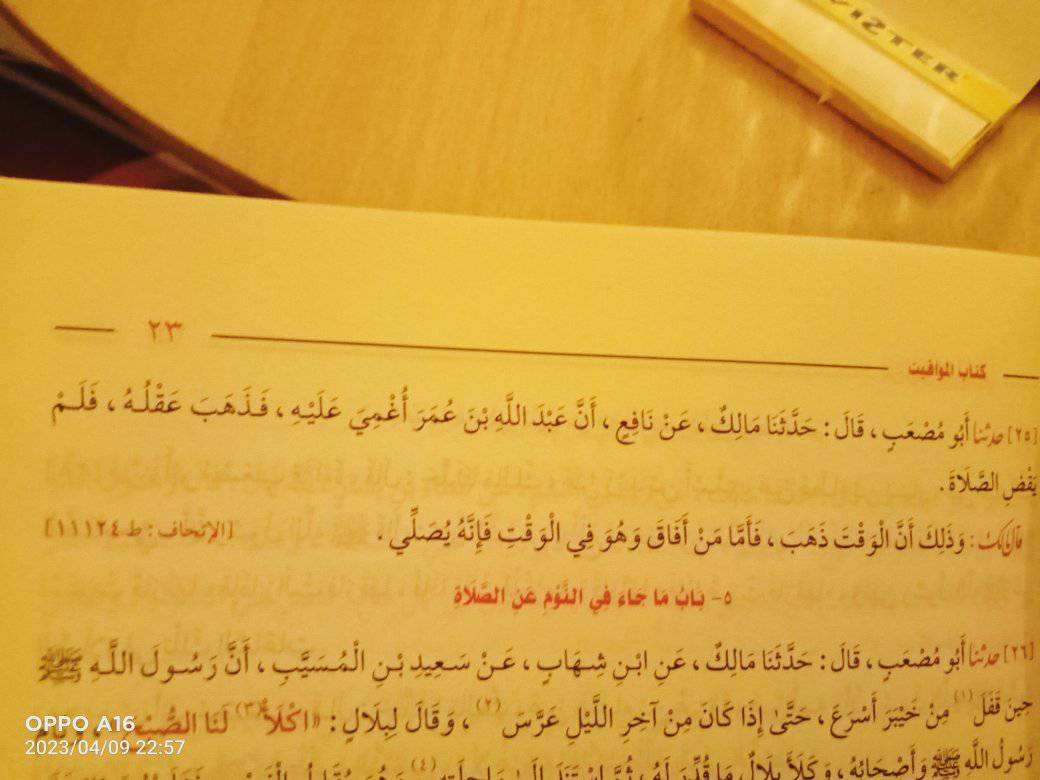 VISTER
٢٣
كتاب المواقيت
[٢٥] حدثنا أَبُو مُصْعَبٍ ، قَالَ : حَدَّثَنَا مَالِكٌ ، عَنْ نَافِعٍ ، أَنَّ عَبْدَ اللَّهِ بْنَ عُمَرَ أُغْمِيَ عَلَيْهِ ، فَذَهَبَ عَقْلُهُ ، فَلَمْ
يَقْضِ الصَّلَاةَ .
قال مالك : وَذَلِكَ أَنَّ الْوَقْتَ ذَهَبَ ، فَأَمَّا مَنْ أَفَاقَ وَهُوَ فِي الْوَقْتِ فَإِنَّهُ يُصَلِّي . [الإتحاف : ط ١١١٢٤]
٥- بَابُ مَا جَاءَ فِي النَّوْمِ عَنِ الصَّلَاةِ
[٢٦] حدثنا أَبُو مُصْعَبٍ ، قَالَ : حَدَّثَنَا مَالِكٌ ، عَنِ ابْنِ شِهَابٍ ، عَنْ سَعِيدِ بْنِ الْمُسَيَّبِ ، أَنَّ رَسُولَ اللَّهِ ﷺ
حِينَ قَفَلَ (١) مِنْ خَيْبَرَ أَسْرَعَ ، حَتَّىٰ إِذَا كَانَ مِنْ آخِرِ اللَّيْلِ عَرَّسَ (٢) ، وَقَالَ لِبِلَالٍ : «اكْلَأْ (٣) لَنَا
رَسُولُ اللَّهِ ﷺ وَأَصْحَابُهُ ، وَكَلَأَ بِلَالٌ مَا قُدِّرَ لَهُ ، ثُمَّ اسْتَنَدَ إِلَىٰ رَاحِلَتِهِ (٤)
OPPO A16
2023/04/09 22:57